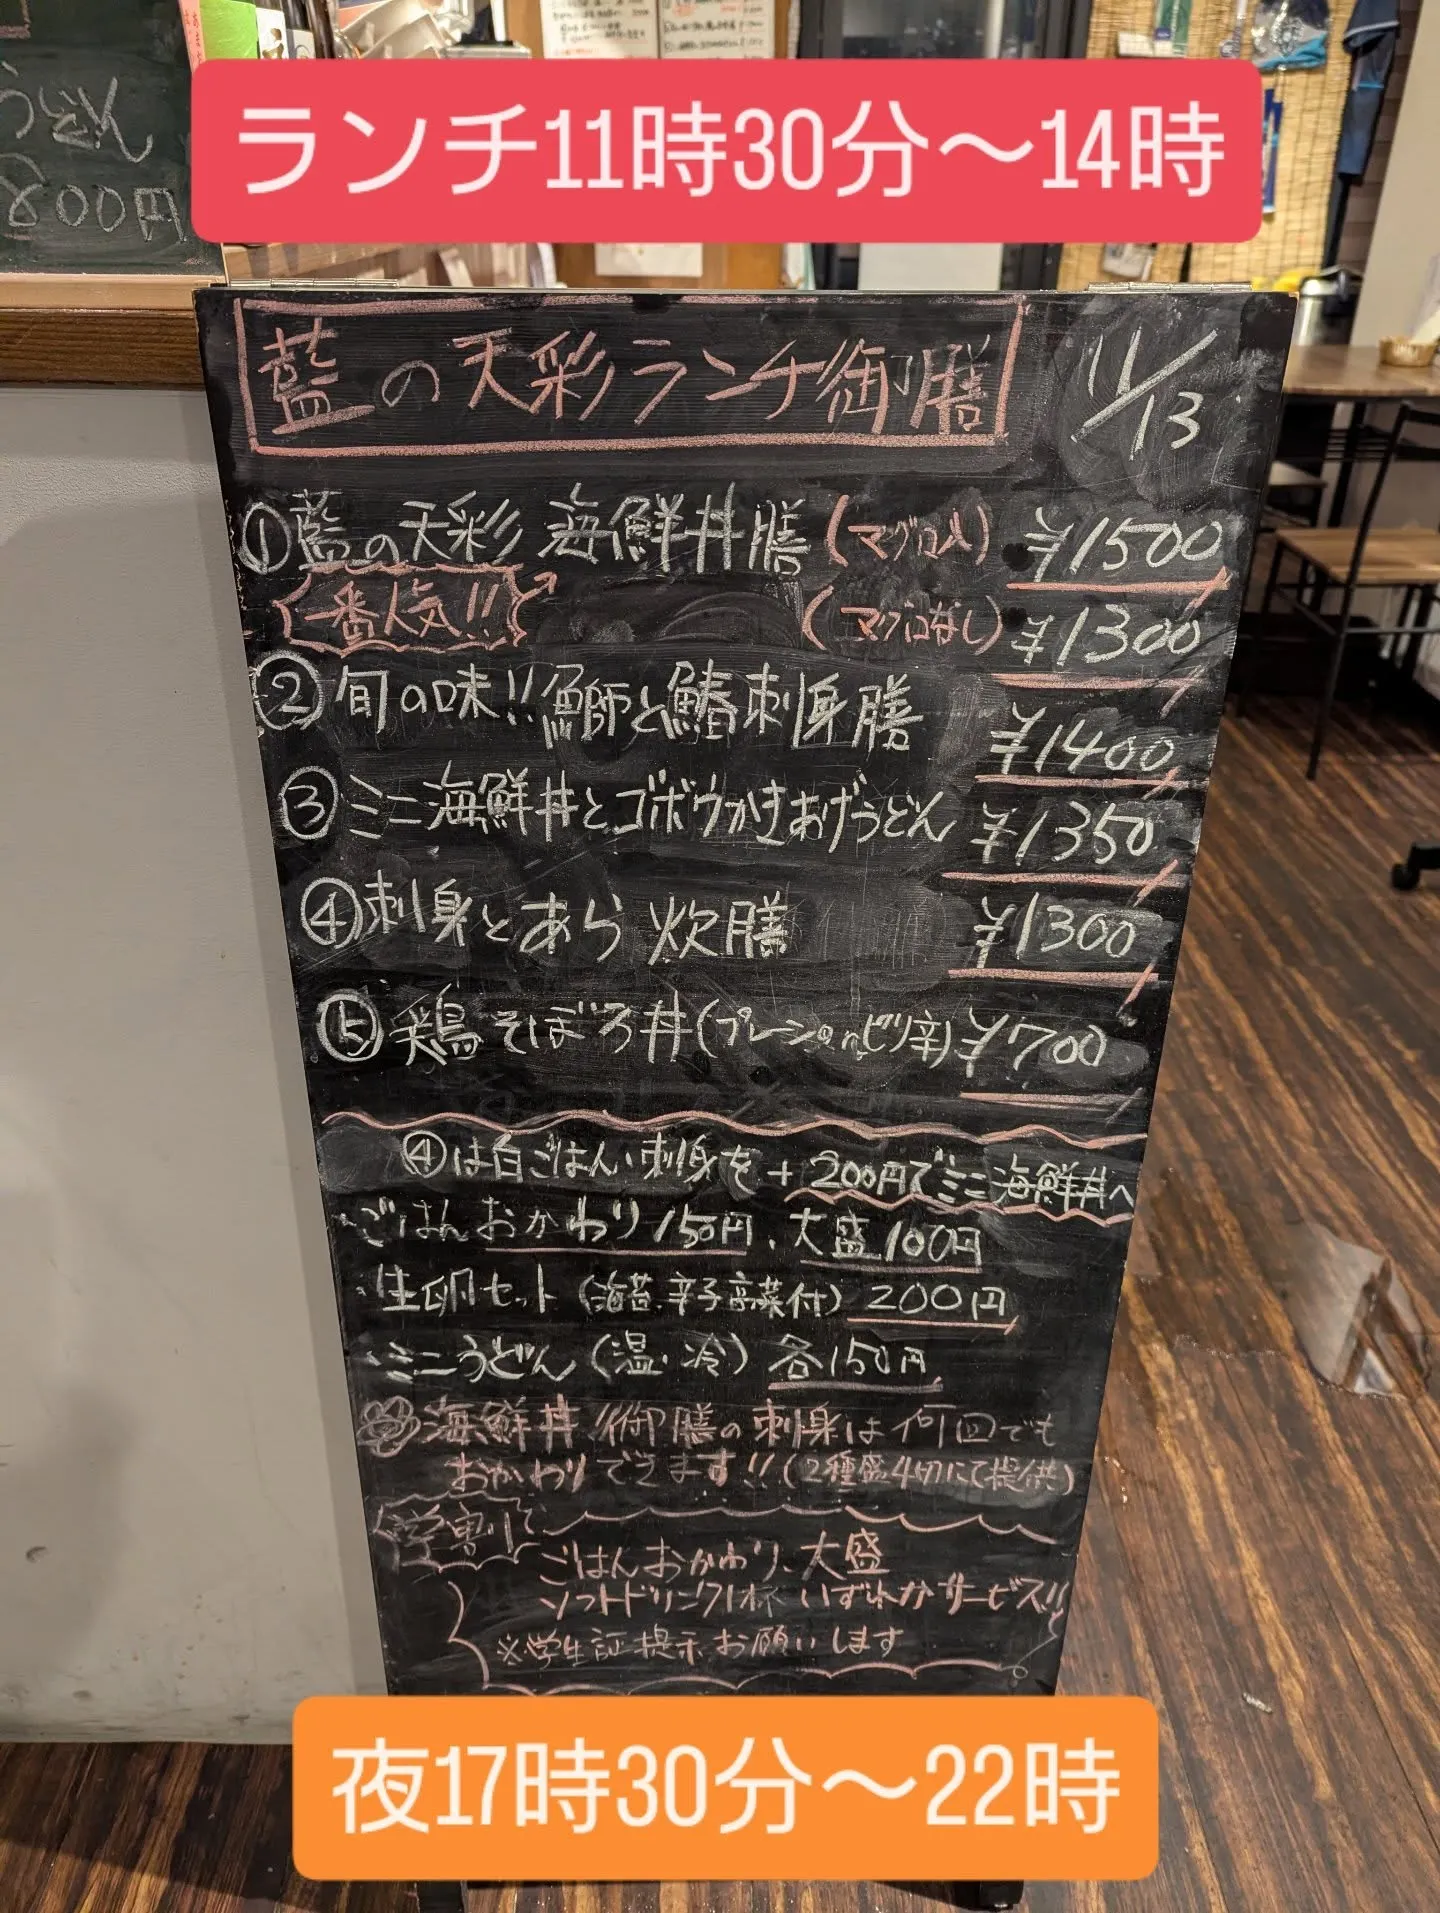 うどん
800円
ランチ11時30分～14時
藍の天彩ランチ御膳 11/13
①藍の天彩 海鮮丼膳(マグロ入) ¥1500
一番人気!! (マグロなし) ¥1300
②旬の味!!鰤と鰆刺身膳 ¥1400
③ミニ海鮮丼とゴボウかきあげうどん ¥1350
④刺身とあら炊膳 ¥1300
⑤鶏そぼろ丼(プレーンorピリ辛) ¥700
④は白ごはん、刺身を+200円でミニ海鮮丼へ
・ごはんおかわり150円、大盛100円
・生卵セット(海苔、辛子高菜付) 200円
・ミニうどん(温・冷) 各150円
海鮮丼、御膳の刺身は何回でも
おかわりできます!!(2種盛4切にて提供)
学割
ごはんおかわり、大盛
ソフトドリンク1杯 いずれかサービス!!
※学生証提示お願いします
夜17時30分～22時